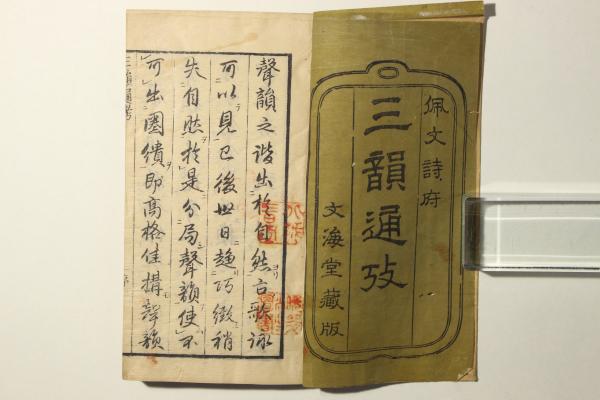 佩文詩府
三韻通攷
文海堂藏版
聲韻之諧出於自然言歌詠
可以見已後世日趨巧緻稍
失自然於是分局聲韻使不
可出圈繢即高格佳搆聲韻
三韻通考
序